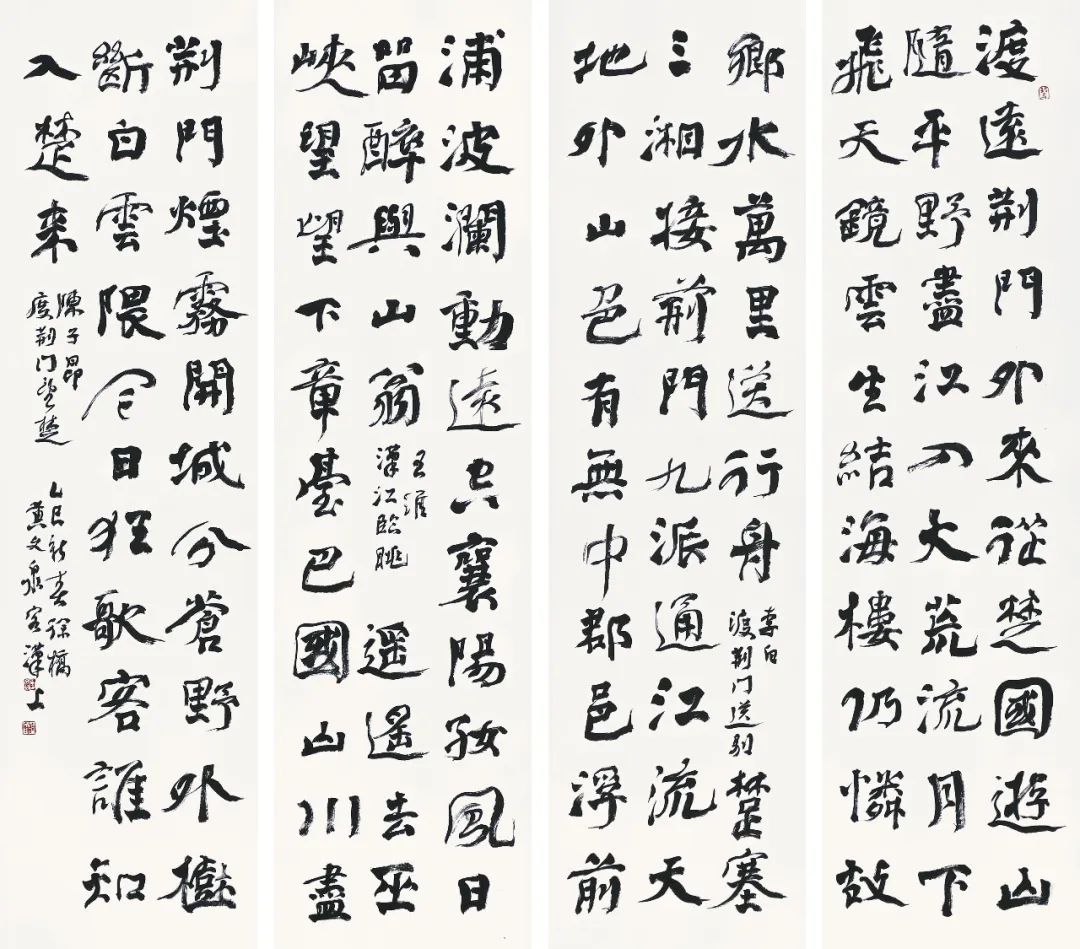 渡遠荊門外來從楚國遊山
隨平野盡江入大荒流月下
飛天鏡雲生結海樓仍憐故
鄉水萬里送行舟
李白
渡荆门送别
楚塞
三湘接荊門九派通江流天
地外山色有無中郡邑浮前
浦波瀾動遠空襄陽好風日
留醉與山翁
王維
漢江臨眺
遥遥去巫
峽望望下章臺巴國山川盡
荊門煙霧開城分蒼野外樹
斷白雲隈今日狂歌客誰知
入楚來
陳子昂
度荆门望楚
乙巳新春徐橋
黄文泉客漢上